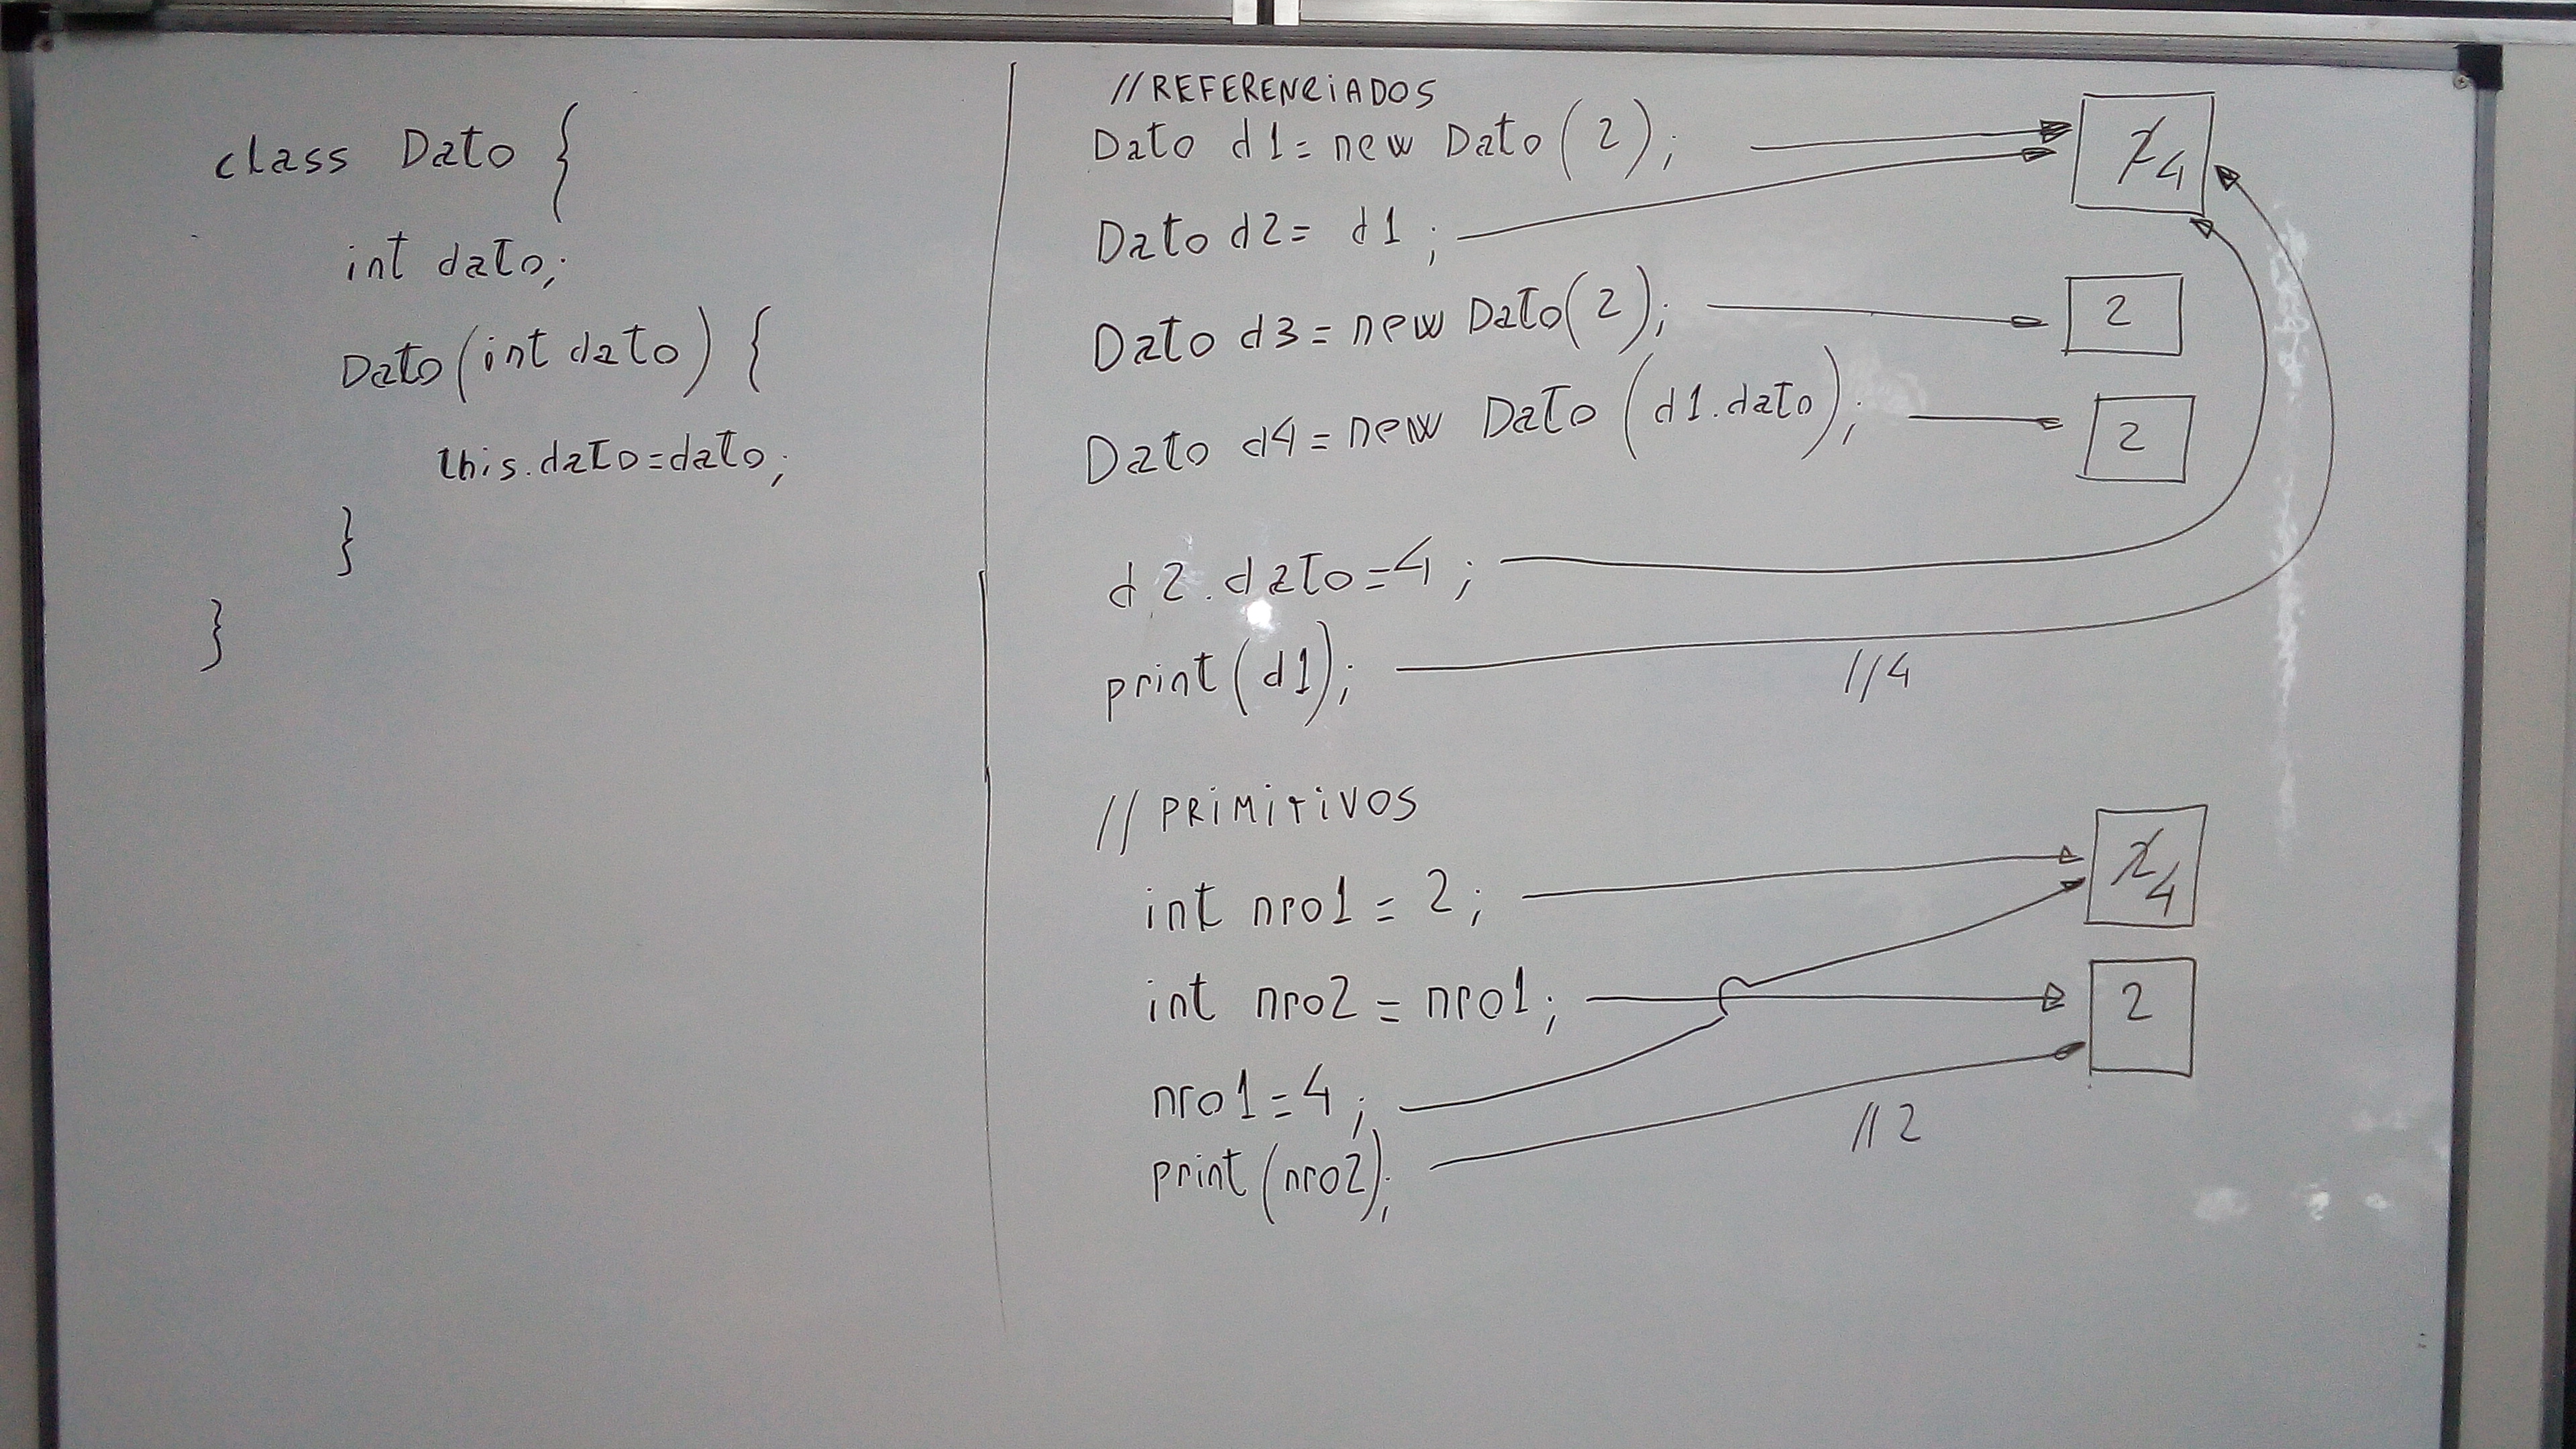 class Dato {
int dato;
Dato(int dato) {
this.dato=dato;
}
}
//REFERENCIADOS
Dato d1=new Dato(2);
Dato d2= d1;
Dato d3=new Dato(2);
Dato d4=new Dato(d1.dato);
d2.dato=4;
print(d1);
//4
2 4
2
2
//PRIMITIVOS
int nro1 = 2;
int nro2 = nro1;
nro1=4;
print(nro2);
//2
2 4
2